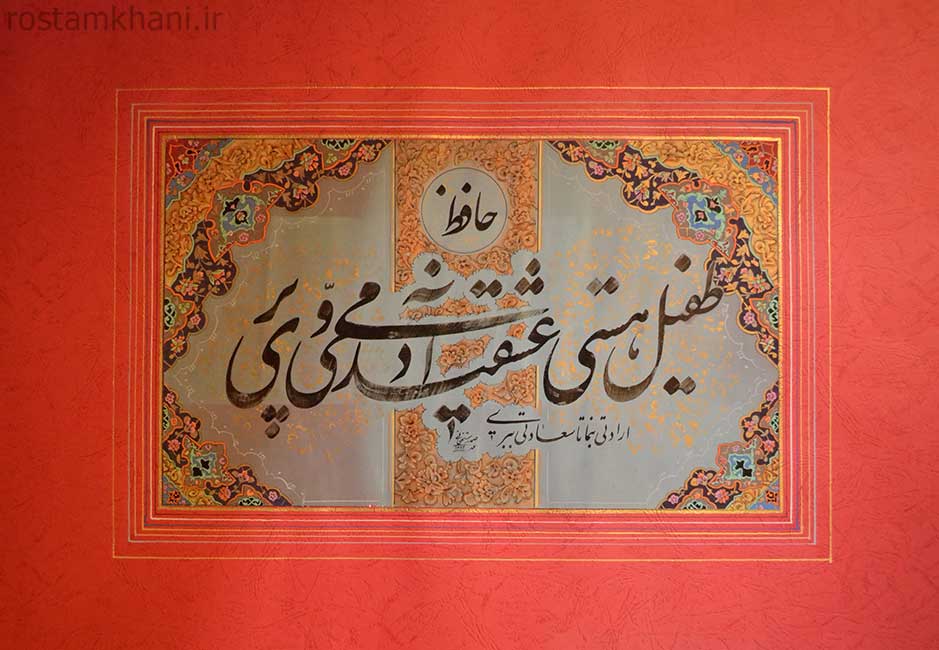 rostamkhani.ir
حافظ
طفیل هستی عشقند آدمی و پری
ارادتی بنما تا سعادتی ببری